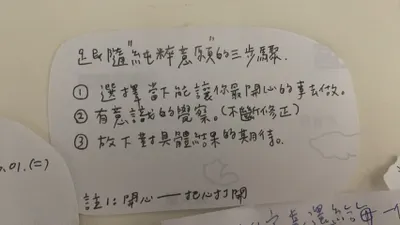 跟隨"純粹意願"的三步驟.
① 選擇當下能讓你最開心的事去做。
② 有意識的覺察。(不斷修正)
③ 放下對具體結果的期待。
註1: 開心——把心打開
.01.(二)
選給每一